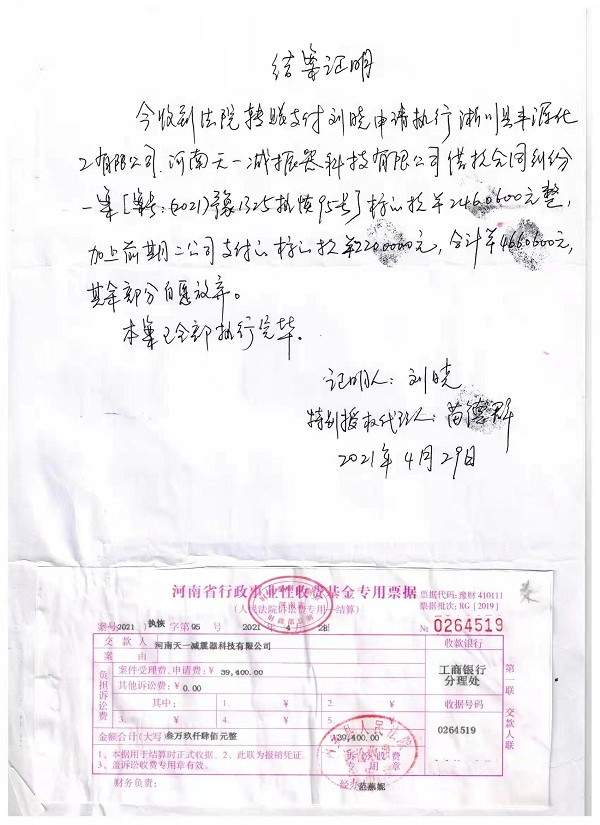 结案证明
今收到法院转账支付刘晓申请执行淅川县丰源化
工有限公司、河南天一减振器科技有限公司借款合同纠纷
一案[案号:(2021)豫1325执恢95号]标的款¥2460600元整,
加上前期二公司支付的标的款¥2200000元,合计¥4660600元,
其余部分自愿放弃。
本案已全部执行完毕。
证明人:刘晓
特别授权代理人:苗德群
2021年4月29日
河南省行政事业性收费基金专用票据
(人民法院诉讼费专用—结算)
票据代码:豫财 410111
票据批次:RG [2019]
案号2021) 执恢 字第95 号 2021 4 28 № 0264519
交款人 河南天一减震器科技有限公司 收款银行
案由
工商银行
分理处
负担诉讼费
案件受理费、申请费:¥ 39,400.00
其他诉讼费:¥ 0.00
其中: 1. ¥ 2. ¥
3. ¥ 4. ¥ 5. ¥
收据号码
0264519
金额合计(大写) 叁万玖仟肆佰元整 39,400.00
1、本据用于结算时正式收据。2、此联为报销凭证。
3、盖诉讼收费专用章有效。
财务负责: 经办
第一联 交款人联
诉讼收费
专用章